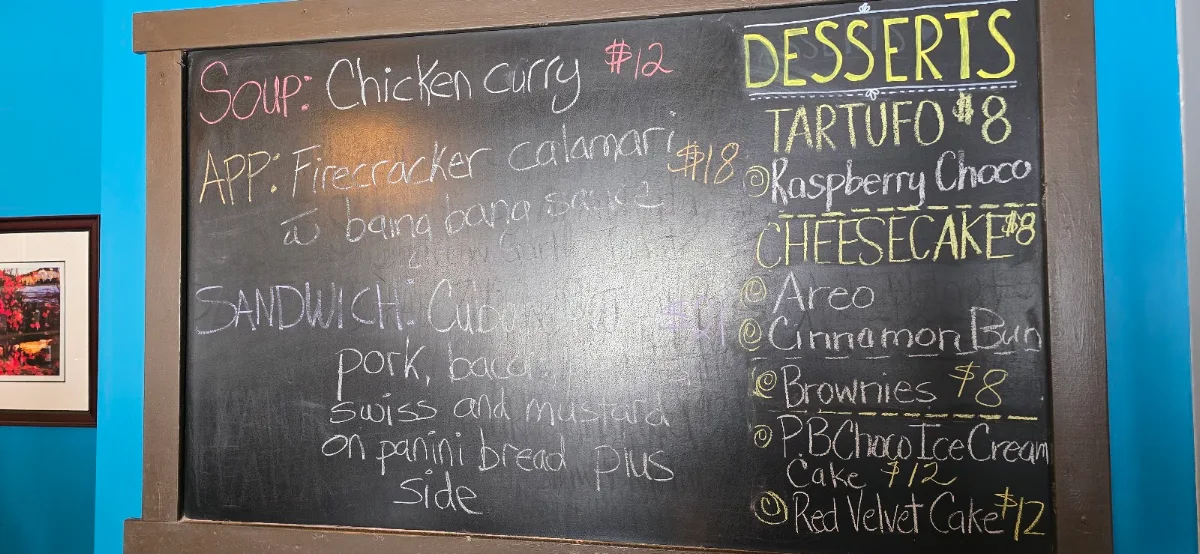 SOUP: Chicken curry $12
APP: Firecracker calamari $18
w baing bang sauce
SANDWICH:
pork,
swiss and mustard
on panini bread plus
side
DESSERTS
TARTUFO $8
Raspberry Choco
CHEESECAKE $8
Areo
Cinnamon Bun
Brownies $8
P.B Choco Ice Cream
Cake $12
Red Velvet Cake $12